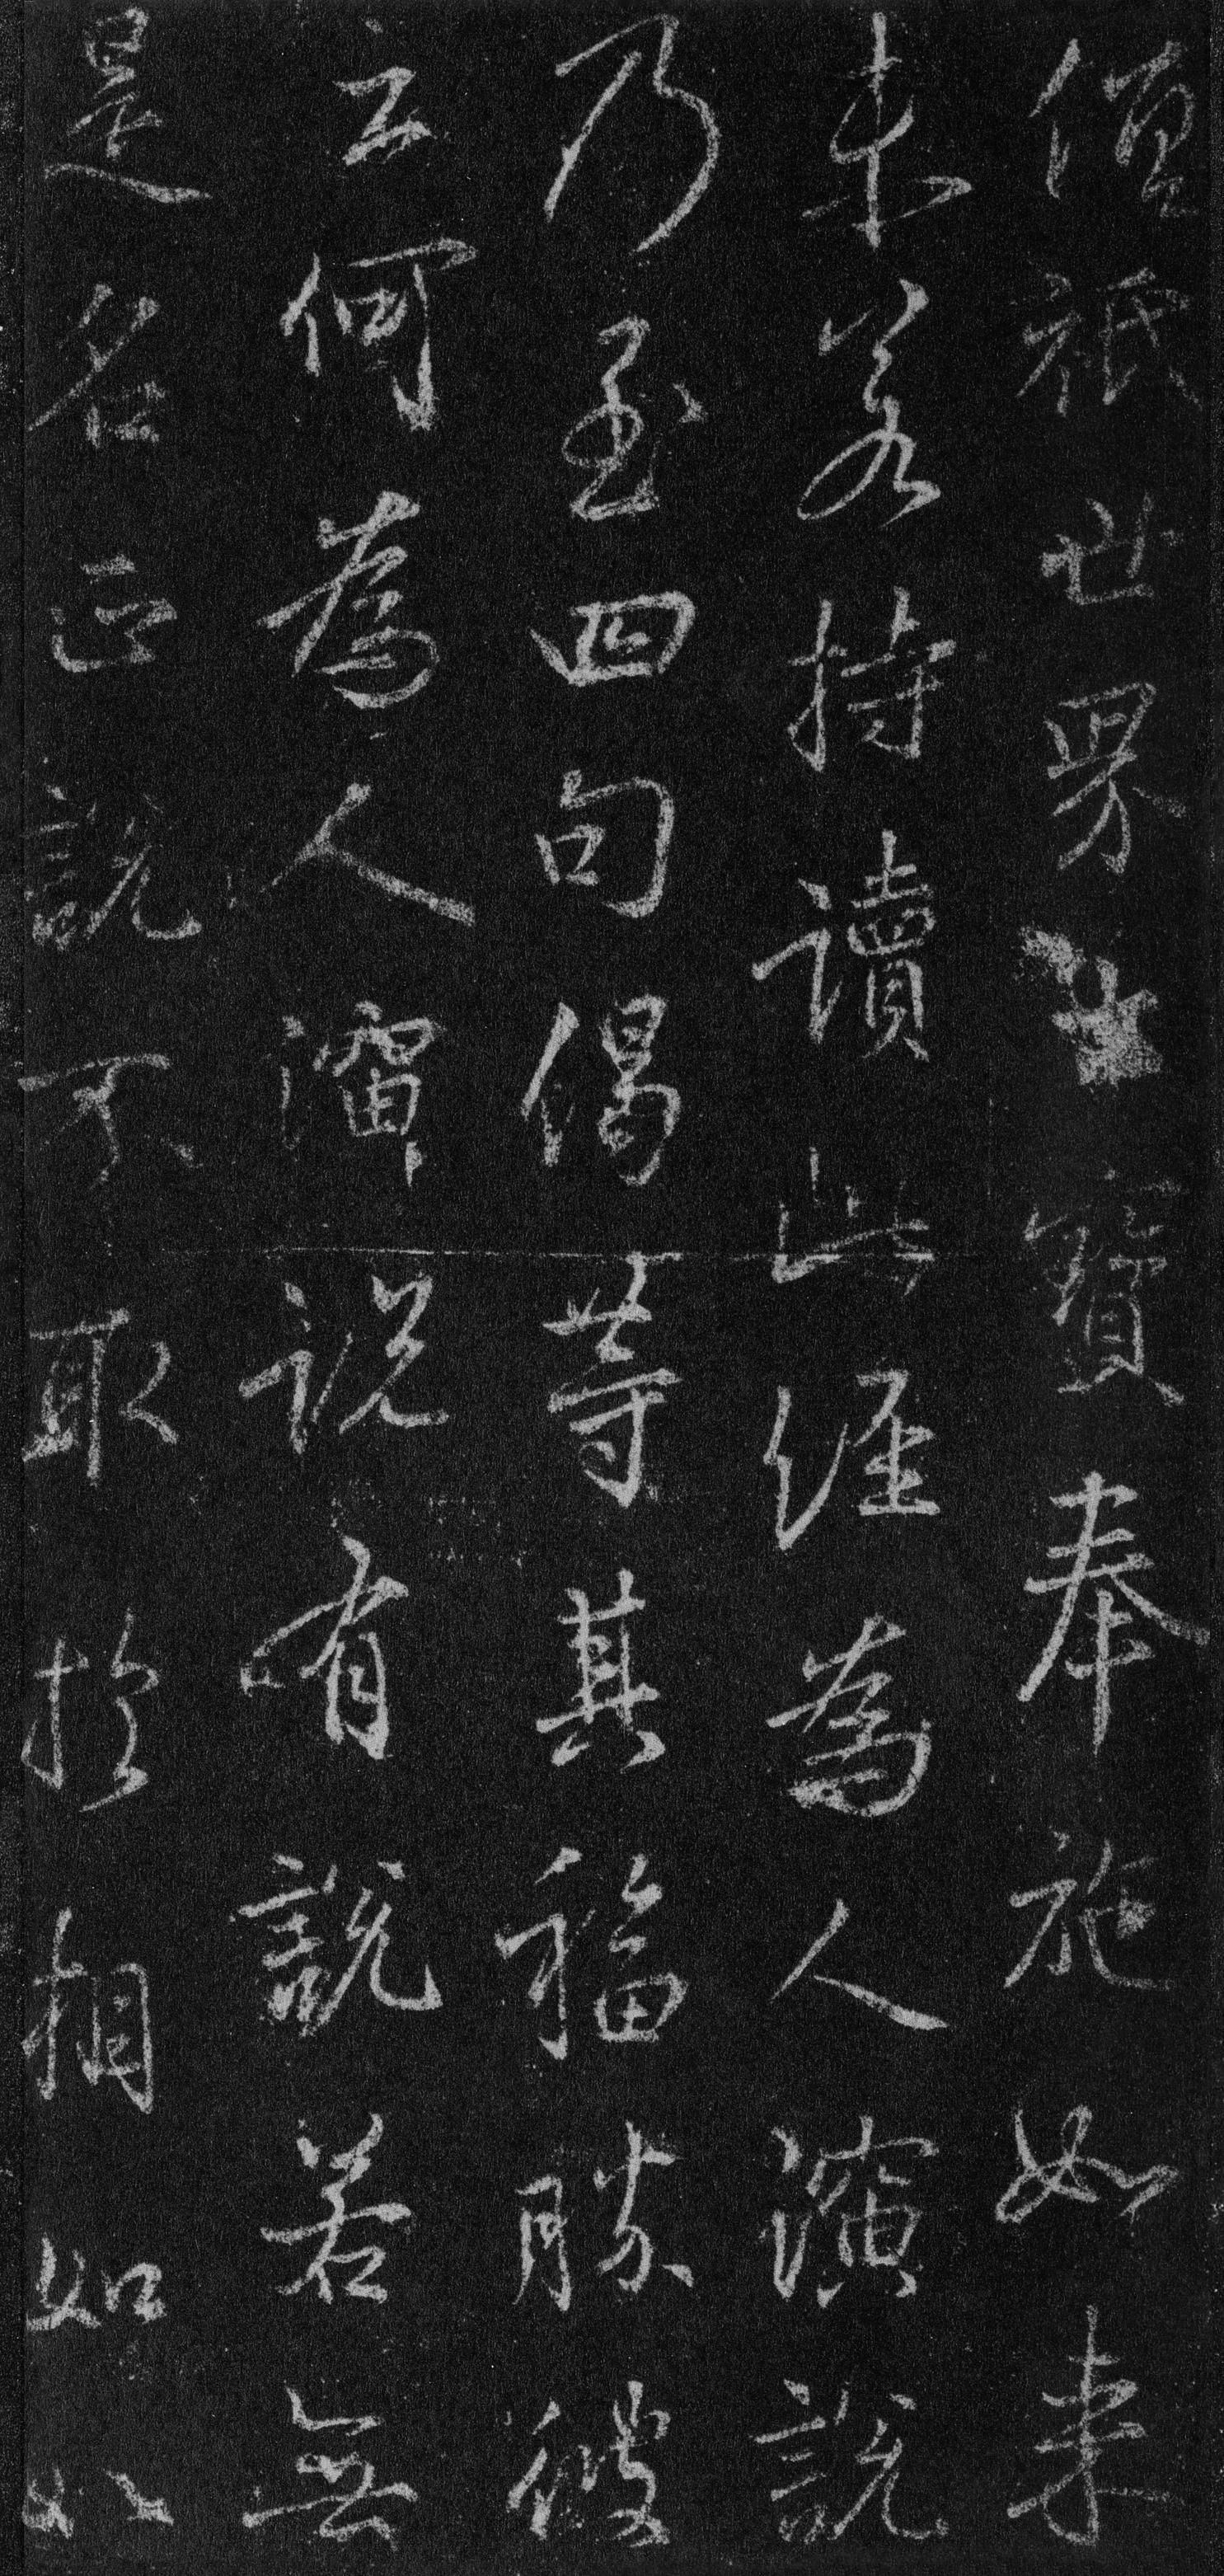 僧祇世界寶奉施如來
未若持讀此經為人演說
乃至四句偈等其福勝彼
云何為人演說有說若無
是名正說不取於相如如